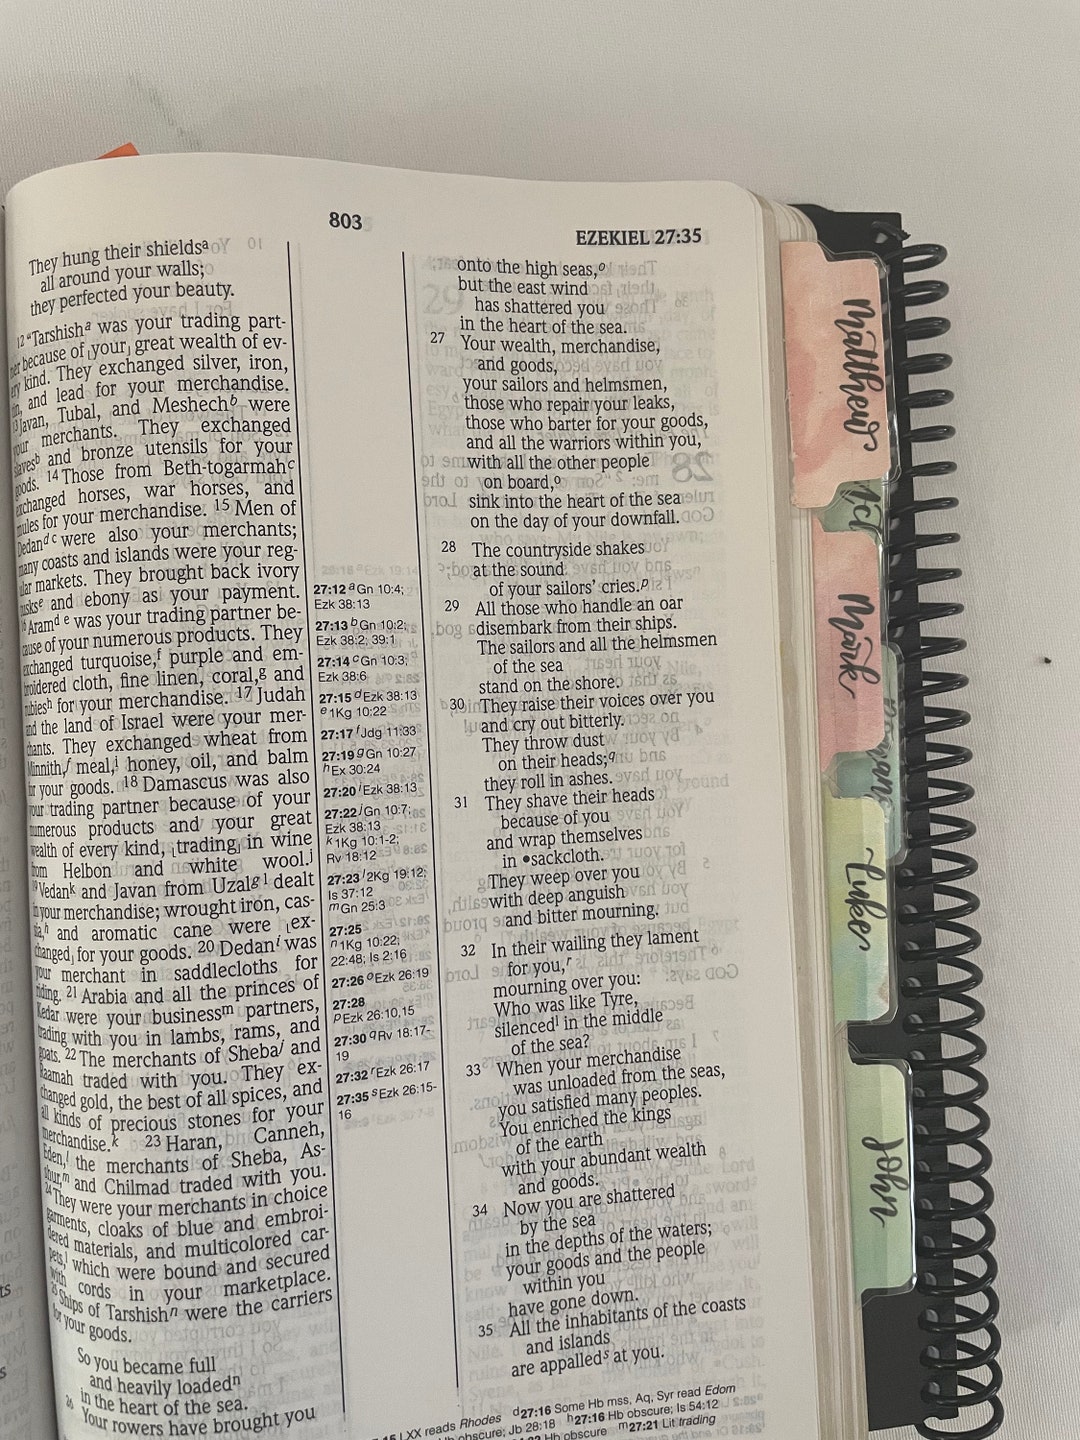 803
EZEKIEL 27:35
They hung their shieldsᵃ
all around your walls;
they perfected your beauty.
12 “Tarshishᵃ was your trading part-
ner because of ⌊your⌋ great wealth of ev-
ery kind. They exchanged silver, iron,
tin, and lead for your merchandise.
13 Javan, Tubal, and Meshechᵇ were
your merchants. They exchanged
slavesᵇ and bronze utensils for your
goods. 14 Those from Beth-togarmahᶜ
exchanged horses, war horses, and
mules for your merchandise. 15 Men of
Dedanᵈ ᶜ were also your merchants;
many coasts and islands were your reg-
ular markets. They brought back ivory
tusksᵉ and ebony as your payment.
16 Aramᵈ ᵉ was your trading partner be-
cause of your numerous products. They
exchanged turquoise,ᶠ purple and em-
broidered cloth, fine linen, coral,ᵍ and
rubiesʰ for your merchandise. 17 Judah
and the land of Israel were your mer-
chants. They exchanged wheat from
Minnith,ᶠ meal,ⁱ honey, oil, and balm
for your goods. 18 Damascus was also
your trading partner because of your
numerous products and your great
wealth of every kind, ⌊trading⌋ in wine
from Helbon and white wool.ʲ
19 Vedanᵏ and Javan from Uzalᵍ ˡ dealt
in your merchandise; wrought iron, cas-
sia,ʰ and aromatic cane were ⌊ex-
changed⌋ for your goods. 20 Dedanⁱ was
your merchant in saddlecloths for
riding. 21 Arabia and all the princes of
Kedar were your businessᵐ partners,
trading with you in lambs, rams, and
goats. 22 The merchants of Shebaʲ and
Raamah traded with you. They ex-
changed gold, the best of all spices, and
all kinds of precious stones for your
merchandise.ᵏ 23 Haran, Canneh,
Eden,ˡ the merchants of Sheba, As-
shur,ᵐ and Chilmad traded with you.
24 They were your merchants in choice
garments, cloaks of blue and embroi-
dered materials, and multicolored car-
pets,ˡ which were bound and secured
with cords in your marketplace.
25 Ships of Tarshishⁿ were the carriers
for your goods.
So you became full
and heavily loadedⁿ
in the heart of the sea.
26 Your rowers have brought you
27:12 ᵃGn 10:4;
Ezk 38:13
27:13 ᵇGn 10:2;
Ezk 38:2; 39:1
27:14 ᶜGn 10:3;
Ezk 38:6
27:15 ᵈEzk 38:13
ᵉ1Kg 10:22
27:17 ᶠJdg 11:33
27:19 ᵍGn 10:27
ʰEx 30:24
27:20 ⁱEzk 38:13
27:22 ʲGn 10:7;
Ezk 38:13
ᵏ1Kg 10:1-2;
Rv 18:12
27:23 ˡ2Kg 19:12;
Is 37:12
ᵐGn 25:3
27:25
ⁿ1Kg 10:22;
22:48; Is 2:16
27:26 ᵒEzk 26:19
27:28
ᵖEzk 26:10,15
27:30 qRv 18:17-
19
27:32 ʳEzk 26:17
27:35 ˢEzk 26:15-
16
onto the high seas,ᵒ
but the east wind
has shattered you
in the heart of the sea.
27 Your wealth, merchandise,
and goods,
your sailors and helmsmen,
those who repair your leaks,
those who barter for your goods,
and all the warriors within you,
with all the other people
on board,ᵒ
sink into the heart of the sea
on the day of your downfall.
28 The countryside shakes
at the sound
of your sailors’ cries.ᵖ
29 All those who handle an oar
disembark from their ships.
The sailors and all the helmsmen
of the sea
stand on the shore.
30 They raise their voices over you
and cry out bitterly.
They throw dust
on their heads;q
they roll in ashes.
31 They shave their heads
because of you
and wrap themselves
in •sackcloth.
They weep over you
with deep anguish
and bitter mourning.
32 In their wailing they lament
for you,ʳ
mourning over you:
Who was like Tyre,
silencedˡ in the middle
of the sea?
33 When your merchandise
was unloaded from the seas,
you satisfied many peoples.
You enriched the kings
of the earth
with your abundant wealth
and goods.
34 Now you are shattered
by the sea
in the depths of the waters;
your goods and the people
within you
have gone down.
35 All the inhabitants of the coasts
and islands
are appalledˢ at you.
LXX reads Rhodes ᵈ27:16 Some Hb mss, Aq, Syr read Edom
Hb obscure; Jb 28:18 ʰ27:16 Hb obscure; Is 54:12
Hb obscure ᵐ27:21 Lit trading
Matthew
Mark
Luke
John